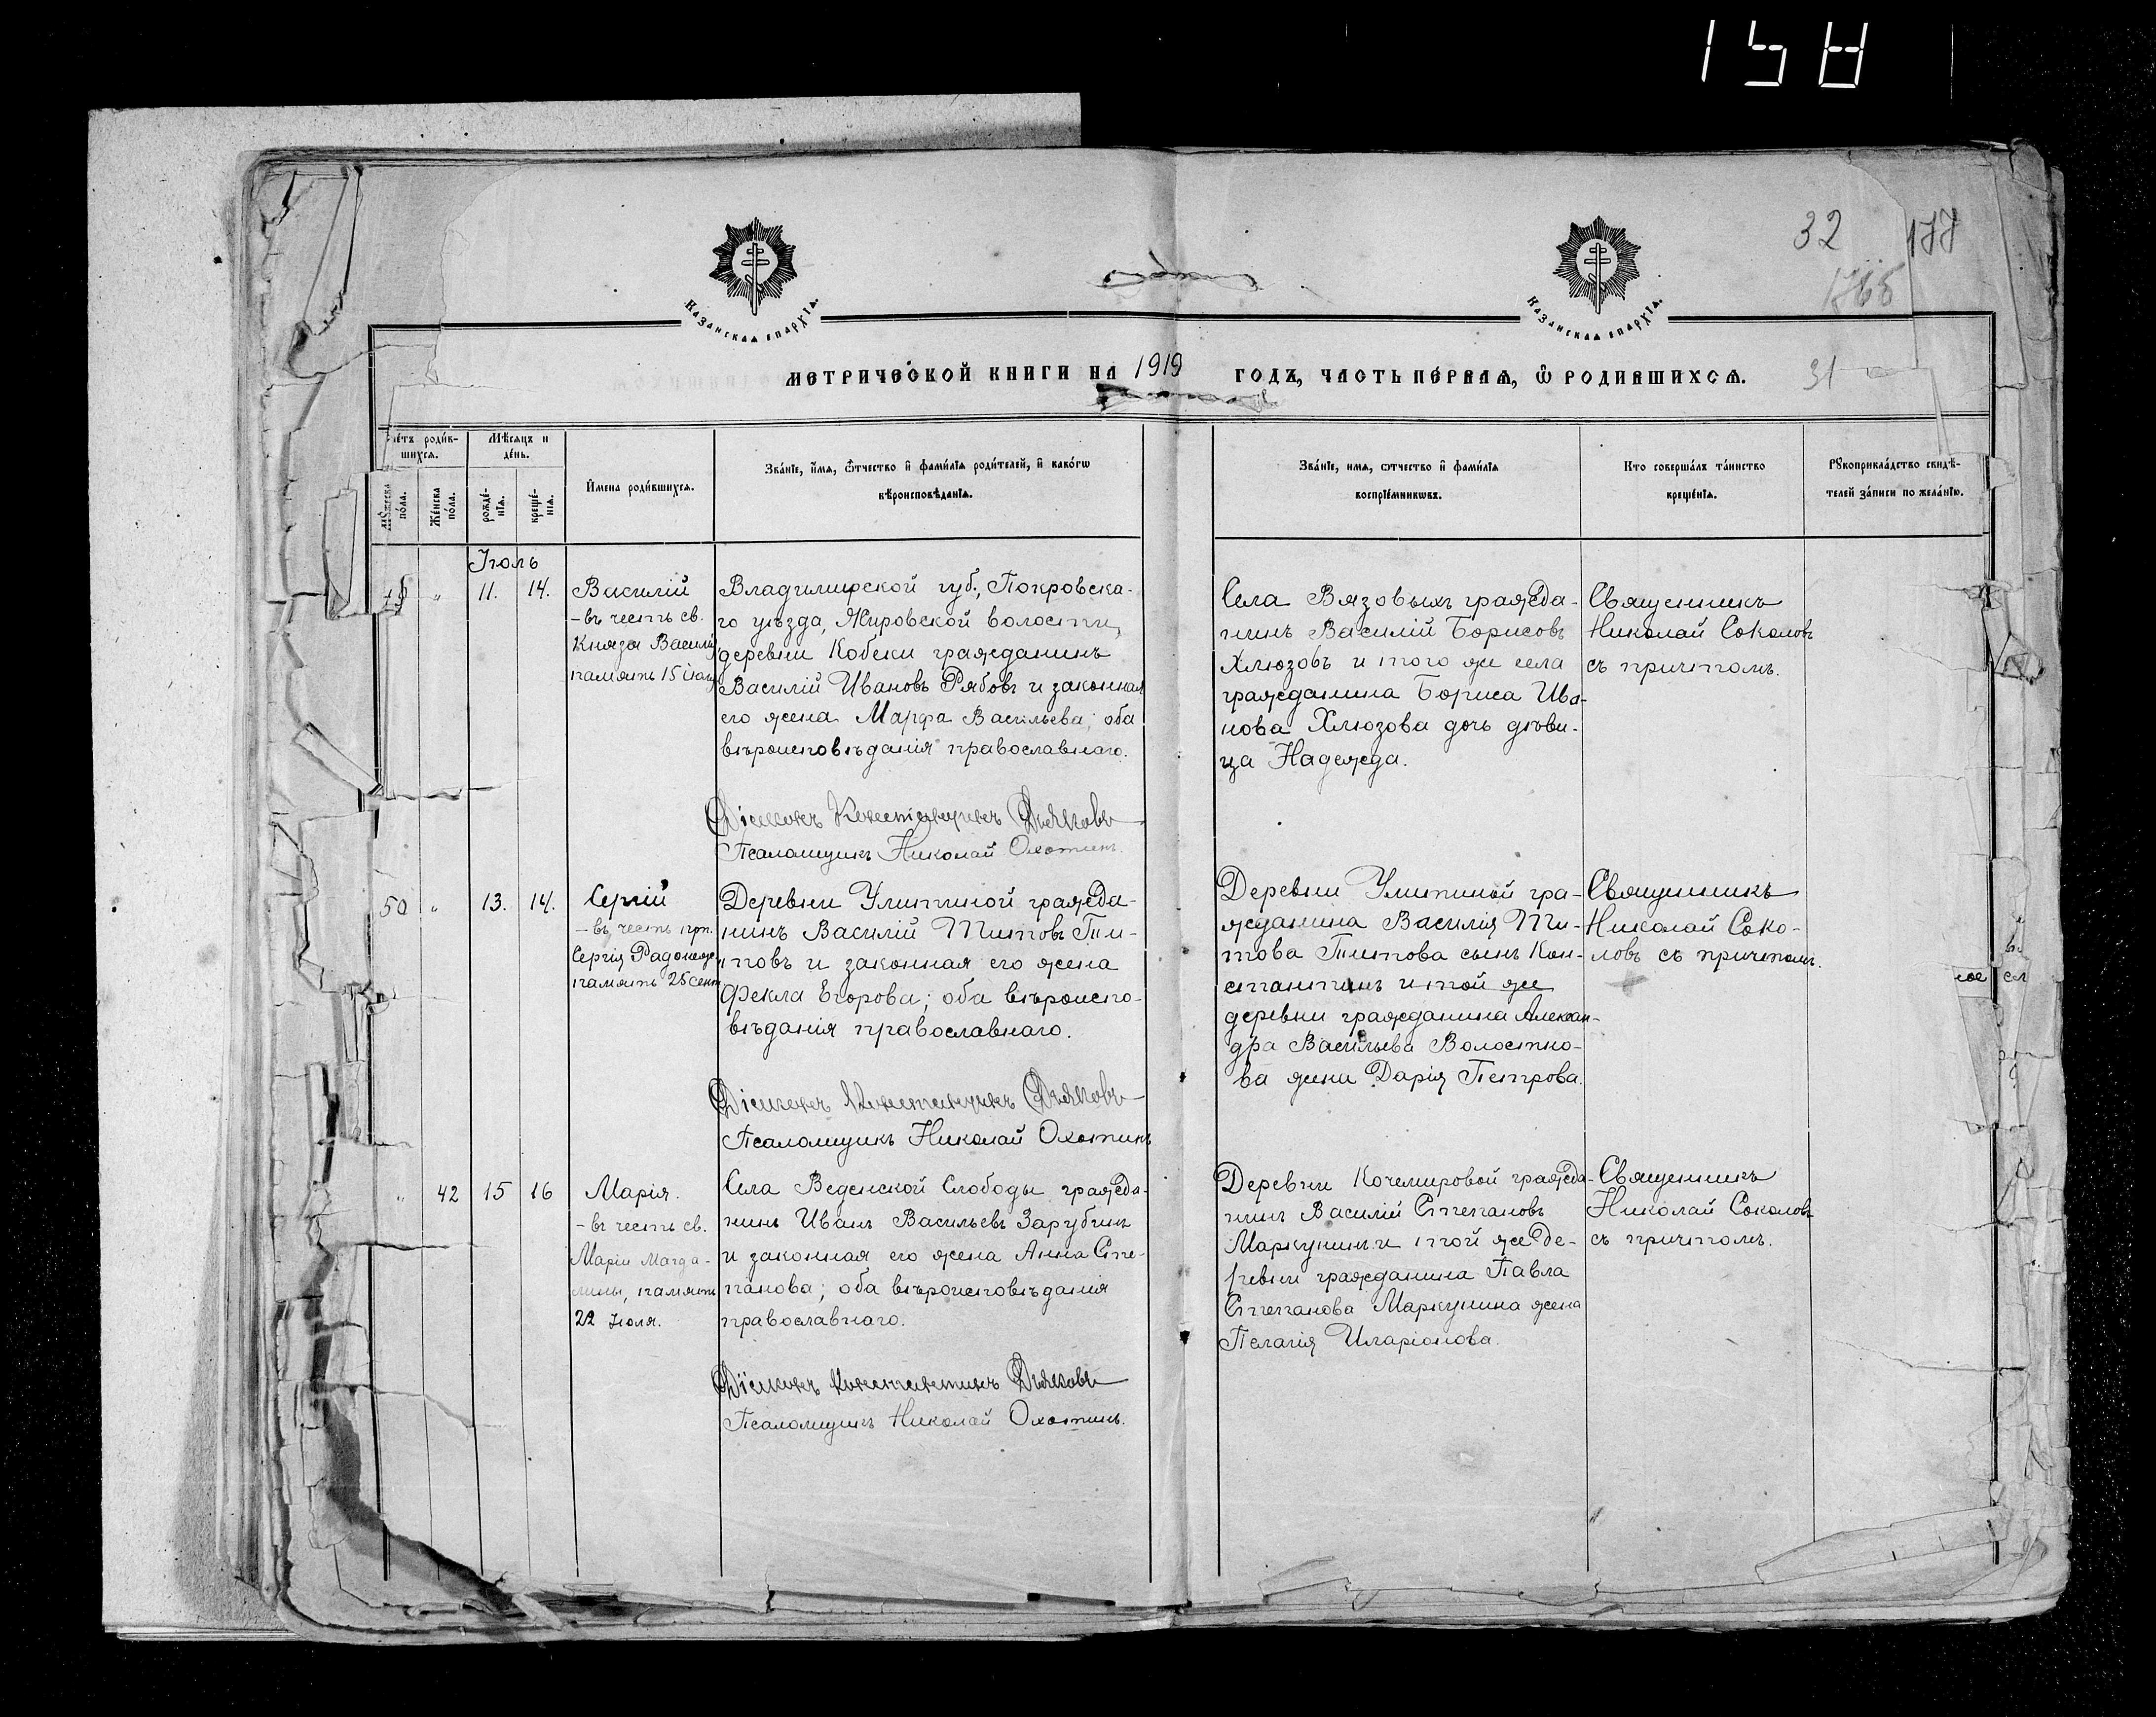 158
32 177
КАЗАНСКАЯ ЕПАРХІЯ.
КАЗАНСКАЯ ЕПАРХІЯ.
МЕТРИЧЕСКОЙ КНИГИ НА 1919 ГОДЪ, ЧАСТЬ ПЕРВАЯ, Ѽ РОДИВШИХСЯ.
31
Счетъ родив-
шихся.
Мѣсяцъ и
день.
Мужеска
пола.
Женска
пола.
рожде-
нія.
креще-
нія.
Имена родившихся.
Званіе, имя, ѻтчество и фамилія родителей, и какогѡ
вѣроисповѣданія.
Званіе, имя, ѻтчество и фамилія
воспріемникѡвъ.
Кто совершалъ таинство
крещенія.
Рꙋкоприкладство свидѣ-
телей записи по желанію.
Іюль
„ 11. 14.
Василій
- въ честь св.
Князя Василія
память 15 іюля
Владимірской губ., Покровска-
го уѣзда, Жировской волости,
деревни Кобеки гражданинъ
Василій Ивановъ Рябовъ и законная
его жена Марфа Васильева; оба
вѣроисповѣданія православнаго.
Діаконъ Константинъ Дьяковъ
Псаломщикъ Николай Охотинъ.
Села Вязовыхъ гражда-
нинъ Василій Борисовъ
Хлюзовъ и того же села
гражданина Бориса Ива-
нова Хлюзова дочь дѣви-
ца Надежда.
Священникъ
Николай Соколовъ
съ причтомъ.
50 „ 13. 14.
Сергій
- въ честь прп.
Сергія Радонеж.
память 25 сент.
Деревни Улитиной гражда-
нинъ Василій Титовъ Ти-
товъ и законная его жена
Фекла Егорова; оба вѣроиспо-
вѣданія православнаго.
Діаконъ Константинъ Дьяковъ
Псаломщикъ Николай Охотинъ
Деревни Улитиной гра-
жданина Василія Ти-
това Титова сынъ Кон-
стантинъ и той же
деревни гражданина Алексан-
дра Васильева Волостно-
ва жена Дарія Петрова.
Священникъ
Николай Соко-
ловъ съ причтомъ.
„ 42 15 16
Марія.
- въ честь св.
Маріи Магда-
лины, память
22 Іюля.
Села Веденской Слободы гражда-
нинъ Иванъ Васильевъ Зарубинъ
и законная его жена Анна Сте-
панова; оба вѣроисповѣданія
православнаго.
Діаконъ Константинъ Дьяковъ
Псаломщикъ Николай Охотинъ.
Деревни Кочемировой гражда-
нинъ Василій Степановъ
Маркунинъ и той же де-
ревни гражданина Павла
Степанова Маркунина жена
Пелагія Иларіонова.
Священникъ
Николай Соколовъ
съ причтомъ.